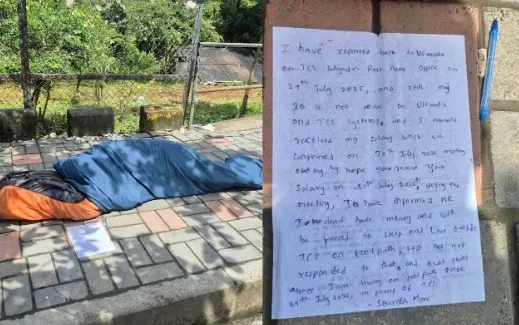 I have reported back to
on TCS Sahyadri Park Pune Office on
29th July 2025, and still my
ID is not active on Ultimatix
and TCS systems, and I haven't
received my salary which was
confirmed on 30th July 2025, meeting
stating by hope your receive your
Salary on 31st July 2025, during the
meeting, I have informed HR
I don't have money and will
be forced to sleep and live outside
TCS on footpath, HR has not
responded to that, and kept quiet
Hence I am living on footpath since
29th July 2025, in front of TCS
- Saurabh More